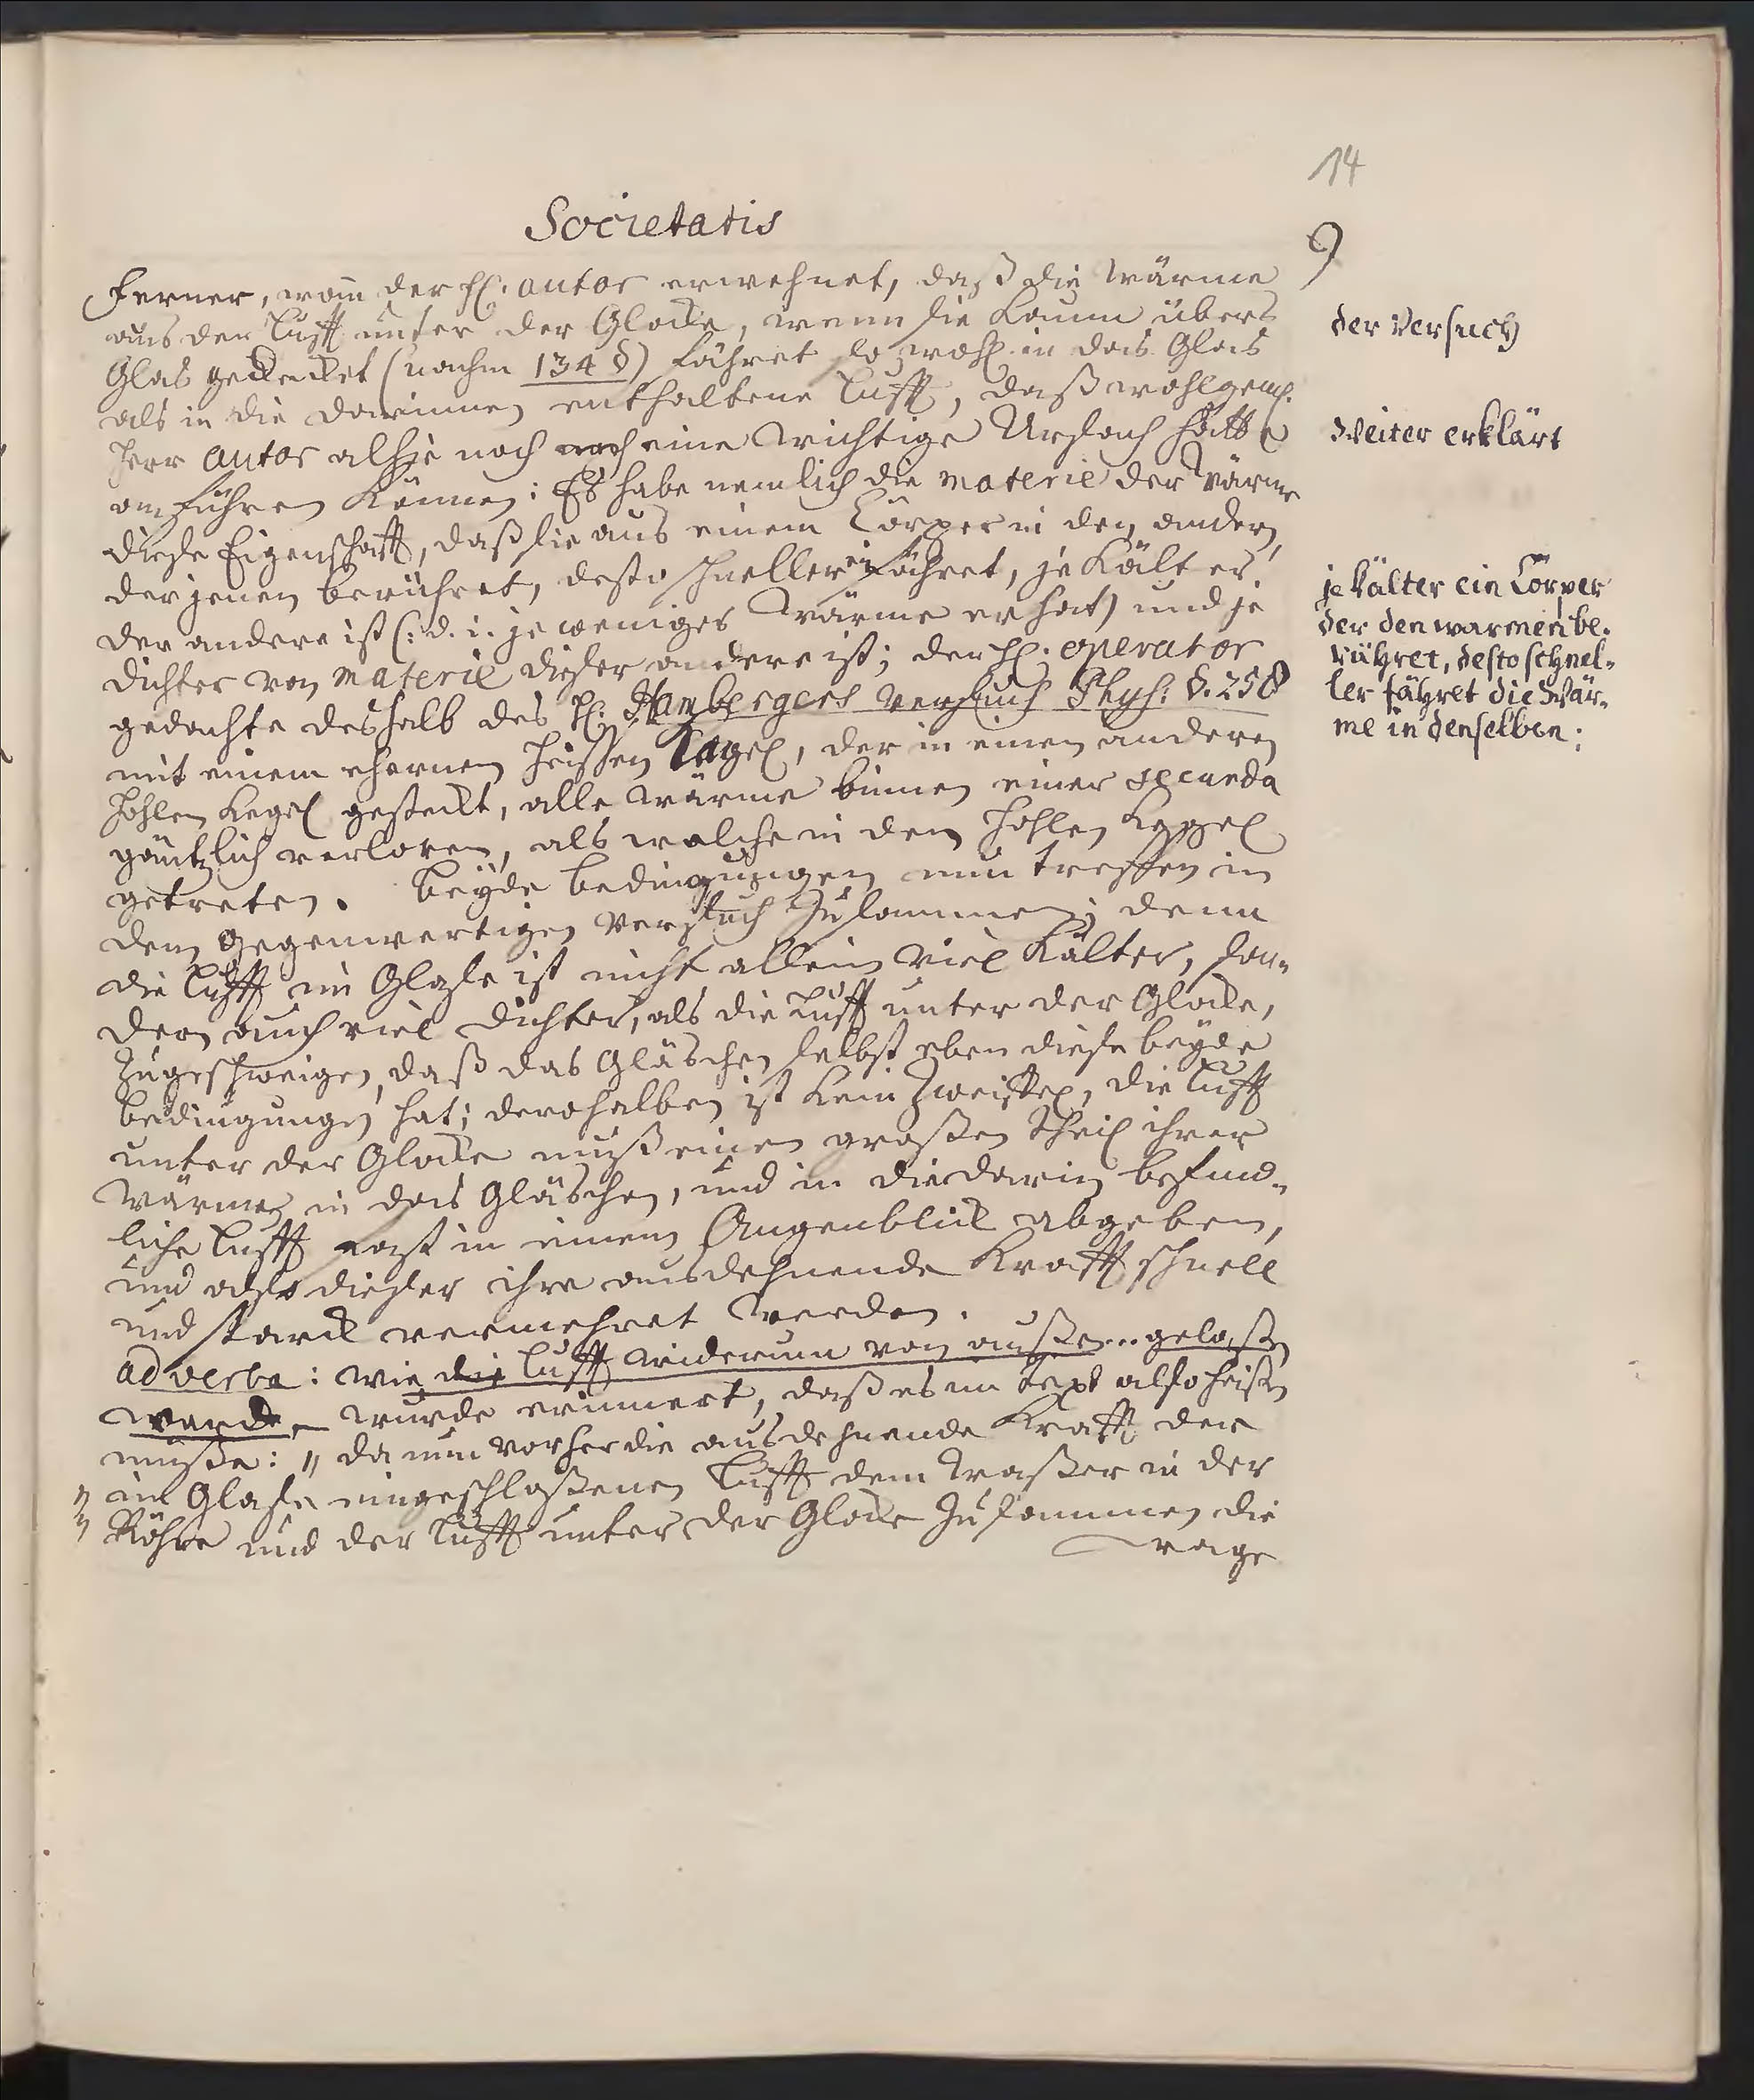 14
Societatis
9
Ferner, wann der H. autor erwehnet, daß die Wärme
aus der Lufft unter der Glocke, wenn sie kaum übers
Glas gedecket (nachm 134 §) fähret so wohl in das Glas
als in die darinnen enthaltene Lufft, daß wohlgem.
Herr autor alhie noch eine wichtige Ursach hätte
anführen können: Es habe nemlich die materie der Wärme
diese Eigenschafft, daß sie aus einem Cörper in den andern,
der jenen berühret, desto schneller fähret, je kälter
der andere ist (: d. i. je weniger Wärme er hat) und je
dichter von materie dieser andere ist; der H. operator
gedachte deshalb des H. Hambergers Versuch Phys: §. 258
mit einem ehernen heissen Kegel, der in einen anderen
hohlen Kegel gesteckt, alle Wärme binnen einer secunda
gäntzlich verloren, als welche in den hohlen Kegel
getreten. Beyde bedingungen nun treffen in
dem gegenwertigen Versuch zusammen; denn
die Lufft im Glase ist nicht allein viel kälter, son„
dern auch viel dichter, als die Lufft unter der Glocke,
zugeschweigen, daß das Gläschen selbst eben diese beyde
bedingungen hat; derohalben ist kein Zweiffel, die Lufft
unter der Glocke muß einen großen Theil ihrer
Wärme in das Gläschen, und in die darin befind„
liche Lufft fast in einem Augenblick abgeben,
und also dieser ihre ausdehnende Krafft schnell
und starck vermehret werden.
ad verba: wie die Lufft widerum von außen... gelaßen
werde, wurde erinnert, daß es im text also heißen
müße: „ da nun vorher die ausdehnende Krafft der
„ im Glase eingeschloßenen Lufft dem Waßer in der
„ Röhre und der Lufft unter der Glocke zusammen die
wage
der Versuch
weiter erklärt
je kälter ein Cörper
der den warmen be„
rühret, desto schnel„
ler fähret die Wär„
me in denselben;